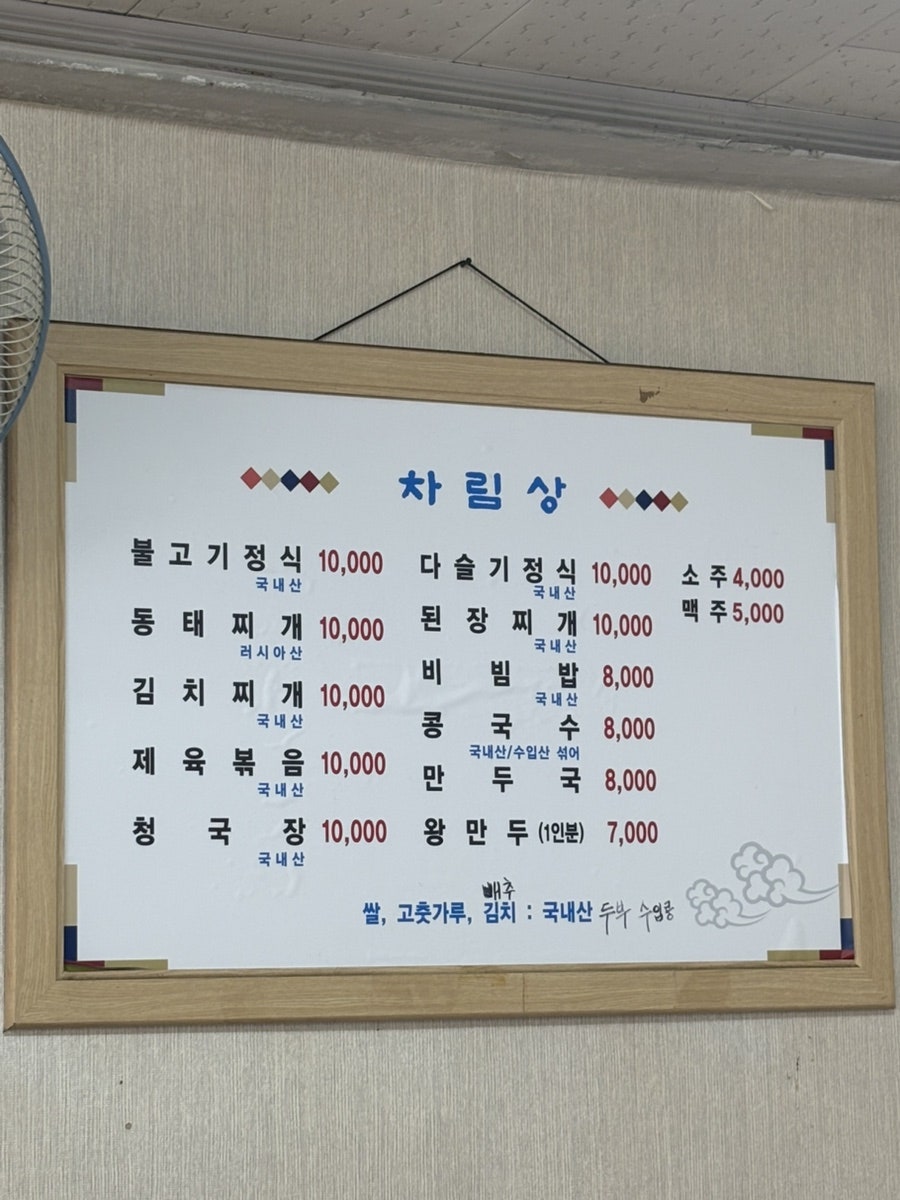 차림상
불고기정식 10,000
국내산
동태찌개 10,000
러시아산
김치찌개 10,000
국내산
제육볶음 10,000
국내산
청국장 10,000
국내산
다슬기정식 10,000
국내산
된장찌개 10,000
국내산
비빔밥 8,000
국내산
콩국수 8,000
국내산/수입산 섞어
만두국 8,000
왕만두(1인분) 7,000
소주 4,000
맥주 5,000
배추
쌀, 고춧가루, 김치 : 국내산 두부 수입콩